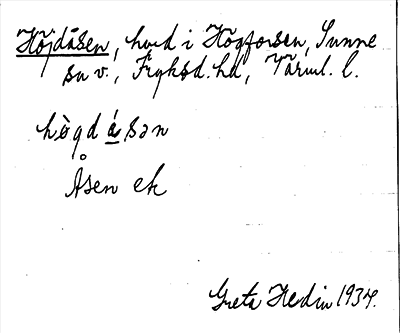 Höjdåsen, hmd i Högforsen, Sunne
sn v., Fryksd. hd, Värml. l.
högdåsən
Åsen ek
Greta Hedin 1934.